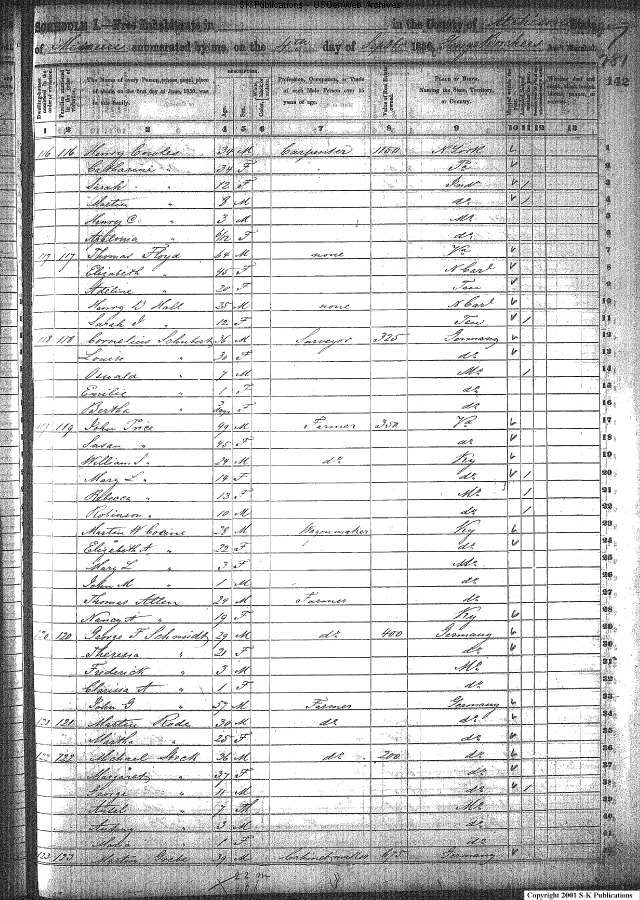 S-K Publications / USGenWeb Archives
SCHEDULE I.—Free Inhabitants in in the County of Atchison State
of Missouri enumerated by me, on the 4th day of Sept 1850. Ass't Marshal.
142
Dwelling-houses numbered in the order of visitation. Families numbered in the order of visitation. The Name of every Person whose usual place of abode on the first day of June, 1850, was in this family. DESCRIPTION. Age. Sex. Profession, Occupation, or Trade of each Male Person over 15 years of age. Value of Real Estate owned. PLACE OF BIRTH. Naming the State, Territory, or Country.
1 2 3 4 5 6 7 8 9 10 11 12 13
116 116 Henry Cowles 34 M Carpenter 1150 N York 1
Catharine " 34 F Pa 2
Sarah " 12 F Ind 1 3
Martin " 8 M do 1 4
Henry C " 3 M Mo 5
" 6/12 F do 6
117 117 Thomas Floyd 64 M none Va 7
Elizabeth " 45 F N Car 8
Adeline " 20 F Ten 9
Henry D Hall 25 M none N Car 10
Sarah J " 12 F Ten 1 11
118 118 Cornelius Schubert 36 M Surveyor 325 Germany 12
Louise " 30 F do 13
Oswald " 7 M Mo 1 14
Emilie " 1 F do 15
Bertha " F do 16
119 119 John Price 49 M Farmer 350 Va 17
Susan " 45 F do 18
William S " 24 M do Ky 19
Mary L " 14 F do 1 20
Rebecca " 13 F Mo 1 21
Robinson " 10 M do 1 22
Martin W 28 M Wagon maker Ky 23
Elizabeth A " 22 F do 24
Mary L " 3 F Mo 25
John M " 1 M do 26
Thomas Allen 24 M Farmer do 27
Nancy A " 19 F Ky 28
120 120 George F Schmidt 29 M do 400 Germany 29
Theresia " 21 F do 30
Frederick " 3 M Mo 31
Clarissa A " 1 F do 32
John G " 57 M Farmer Germany 33
121 121 Martin Rode 30 M do do 34
Martha " 25 F do 35
122 122 Michael Stock 36 M do 200 do 36
Margaret " 37 F do 37
George " 11 M do 1 38
" 7 M Mo 39
" 3 M do 40
" 1 F do 41
123 123 Martin 39 M Cabinet maker 675 Germany 42
Copyright 2001 S-K Publications